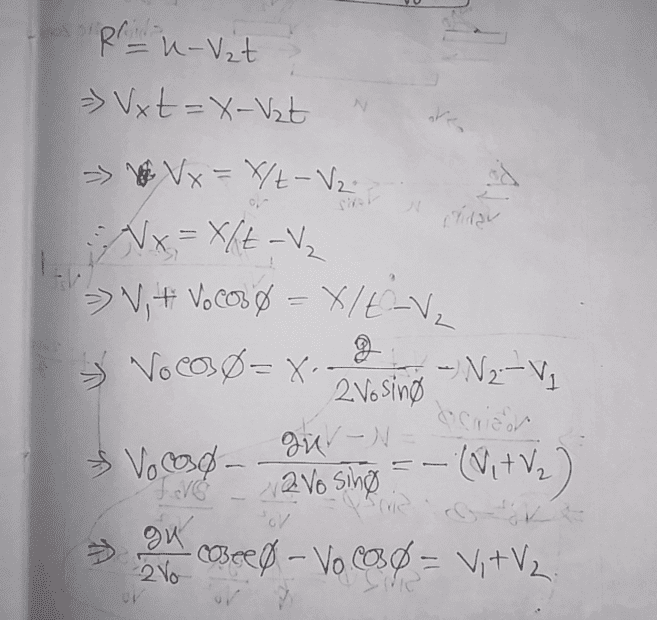 R' = x - V₂t
⇒ Vₓt = X - V₂t
⇒ Vₓ = X/t - V₂
∴ Vₓ = X/t - V₂
⇒ V₁ + V₀cosø = X/t - V₂
⇒ V₀cosø = X · g / 2V₀sinø - V₂ - V₁
⇒ V₀cosø - gx / 2V₀ sinø = - (V₁ + V₂)
⇒ gx / 2V₀ cosecø - V₀ cosø = V₁ + V₂